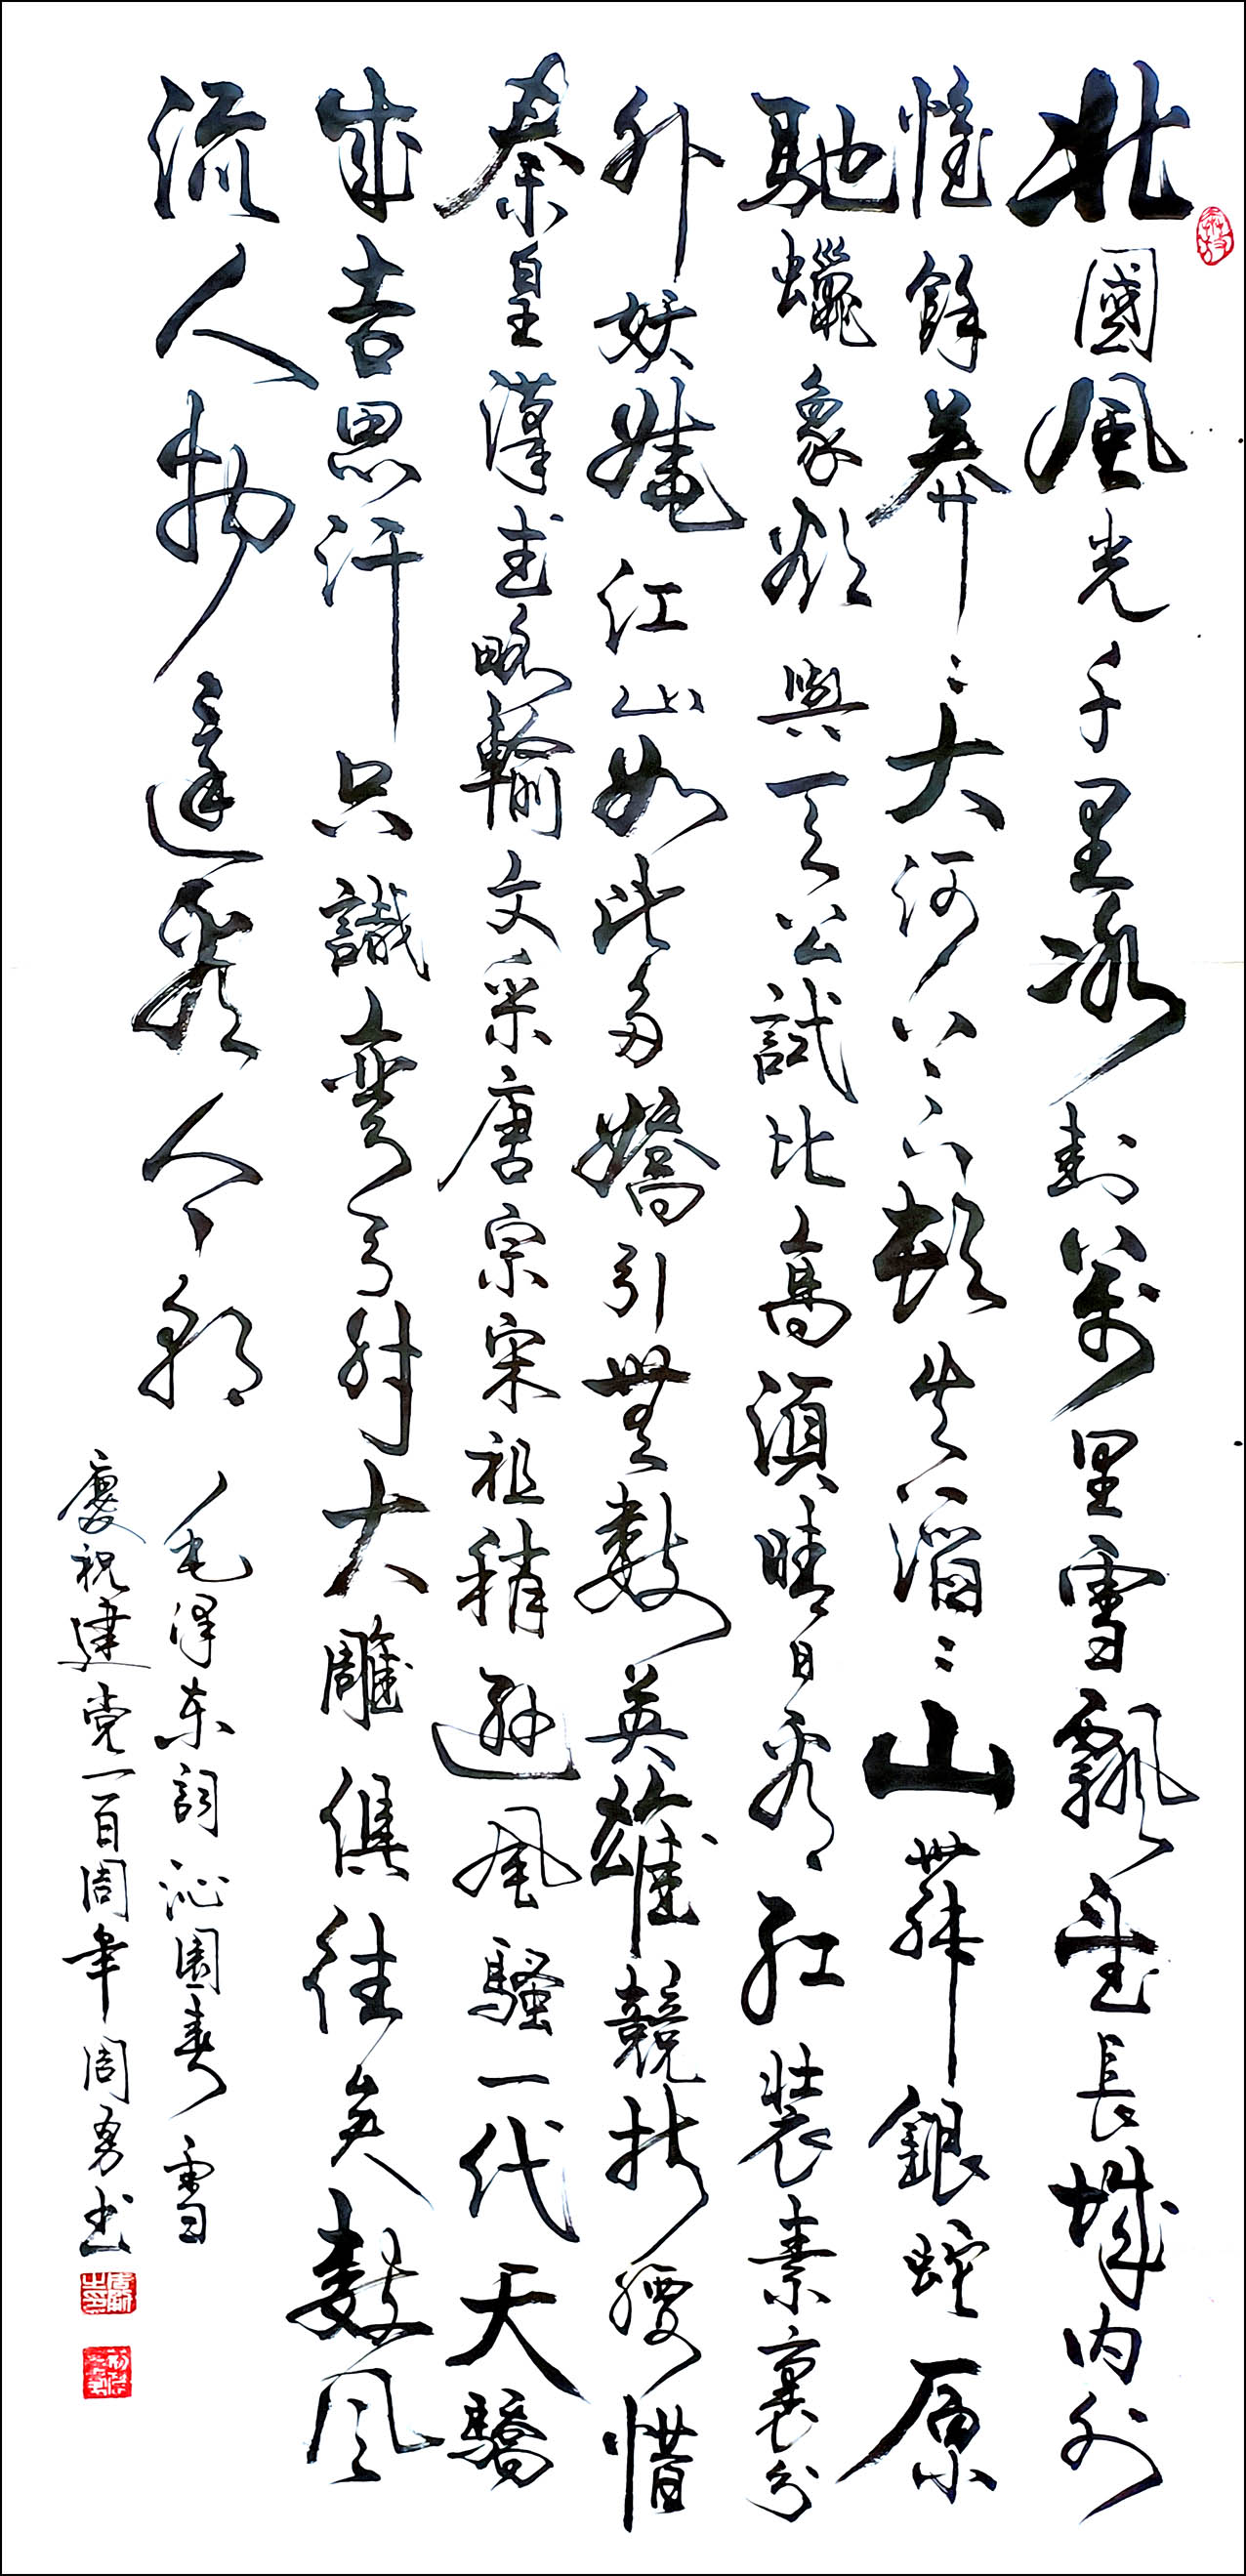 北國風光千里冰封萬里雪飄望長城内外
惟餘莽〻大河上下頓失滔〻山舞銀蛇原
馳蠟象欲與天公試比高須晴日看紅裝素裹分
外妖嬈江山如此多嬌引無數英雄競折腰惜
秦皇漢武略輸文采唐宗宋祖稍遜風騷一代天驕
成吉思汗只識彎弓射大雕俱往矣數風
流人物還看今朝
毛泽东詞沁園春雪
慶祝建党一百周年周勇书